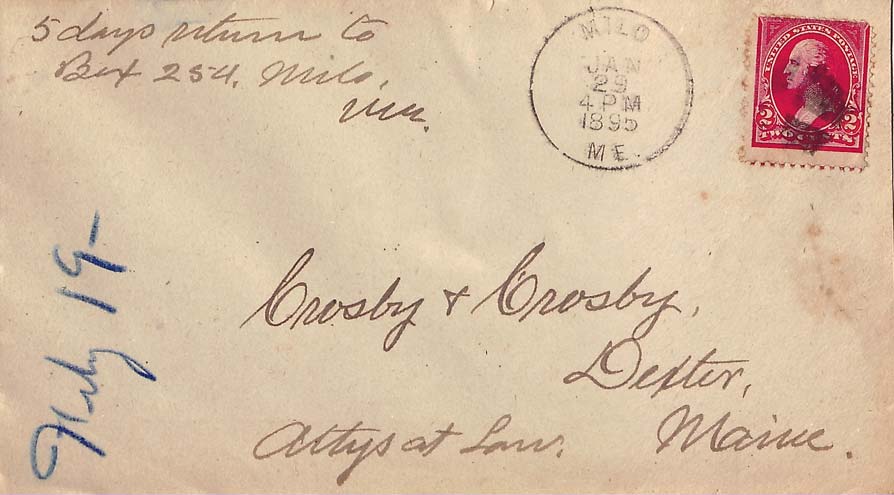 5 days return to
Box 254, Milo,
Me.
MILO
JAN
29
4 PM
1895
ME.
UNITED STATES POSTAGE
2 2
TWO CENTS
Crosby & Crosby,
Dexter,
Attys at Law. Maine.
19-